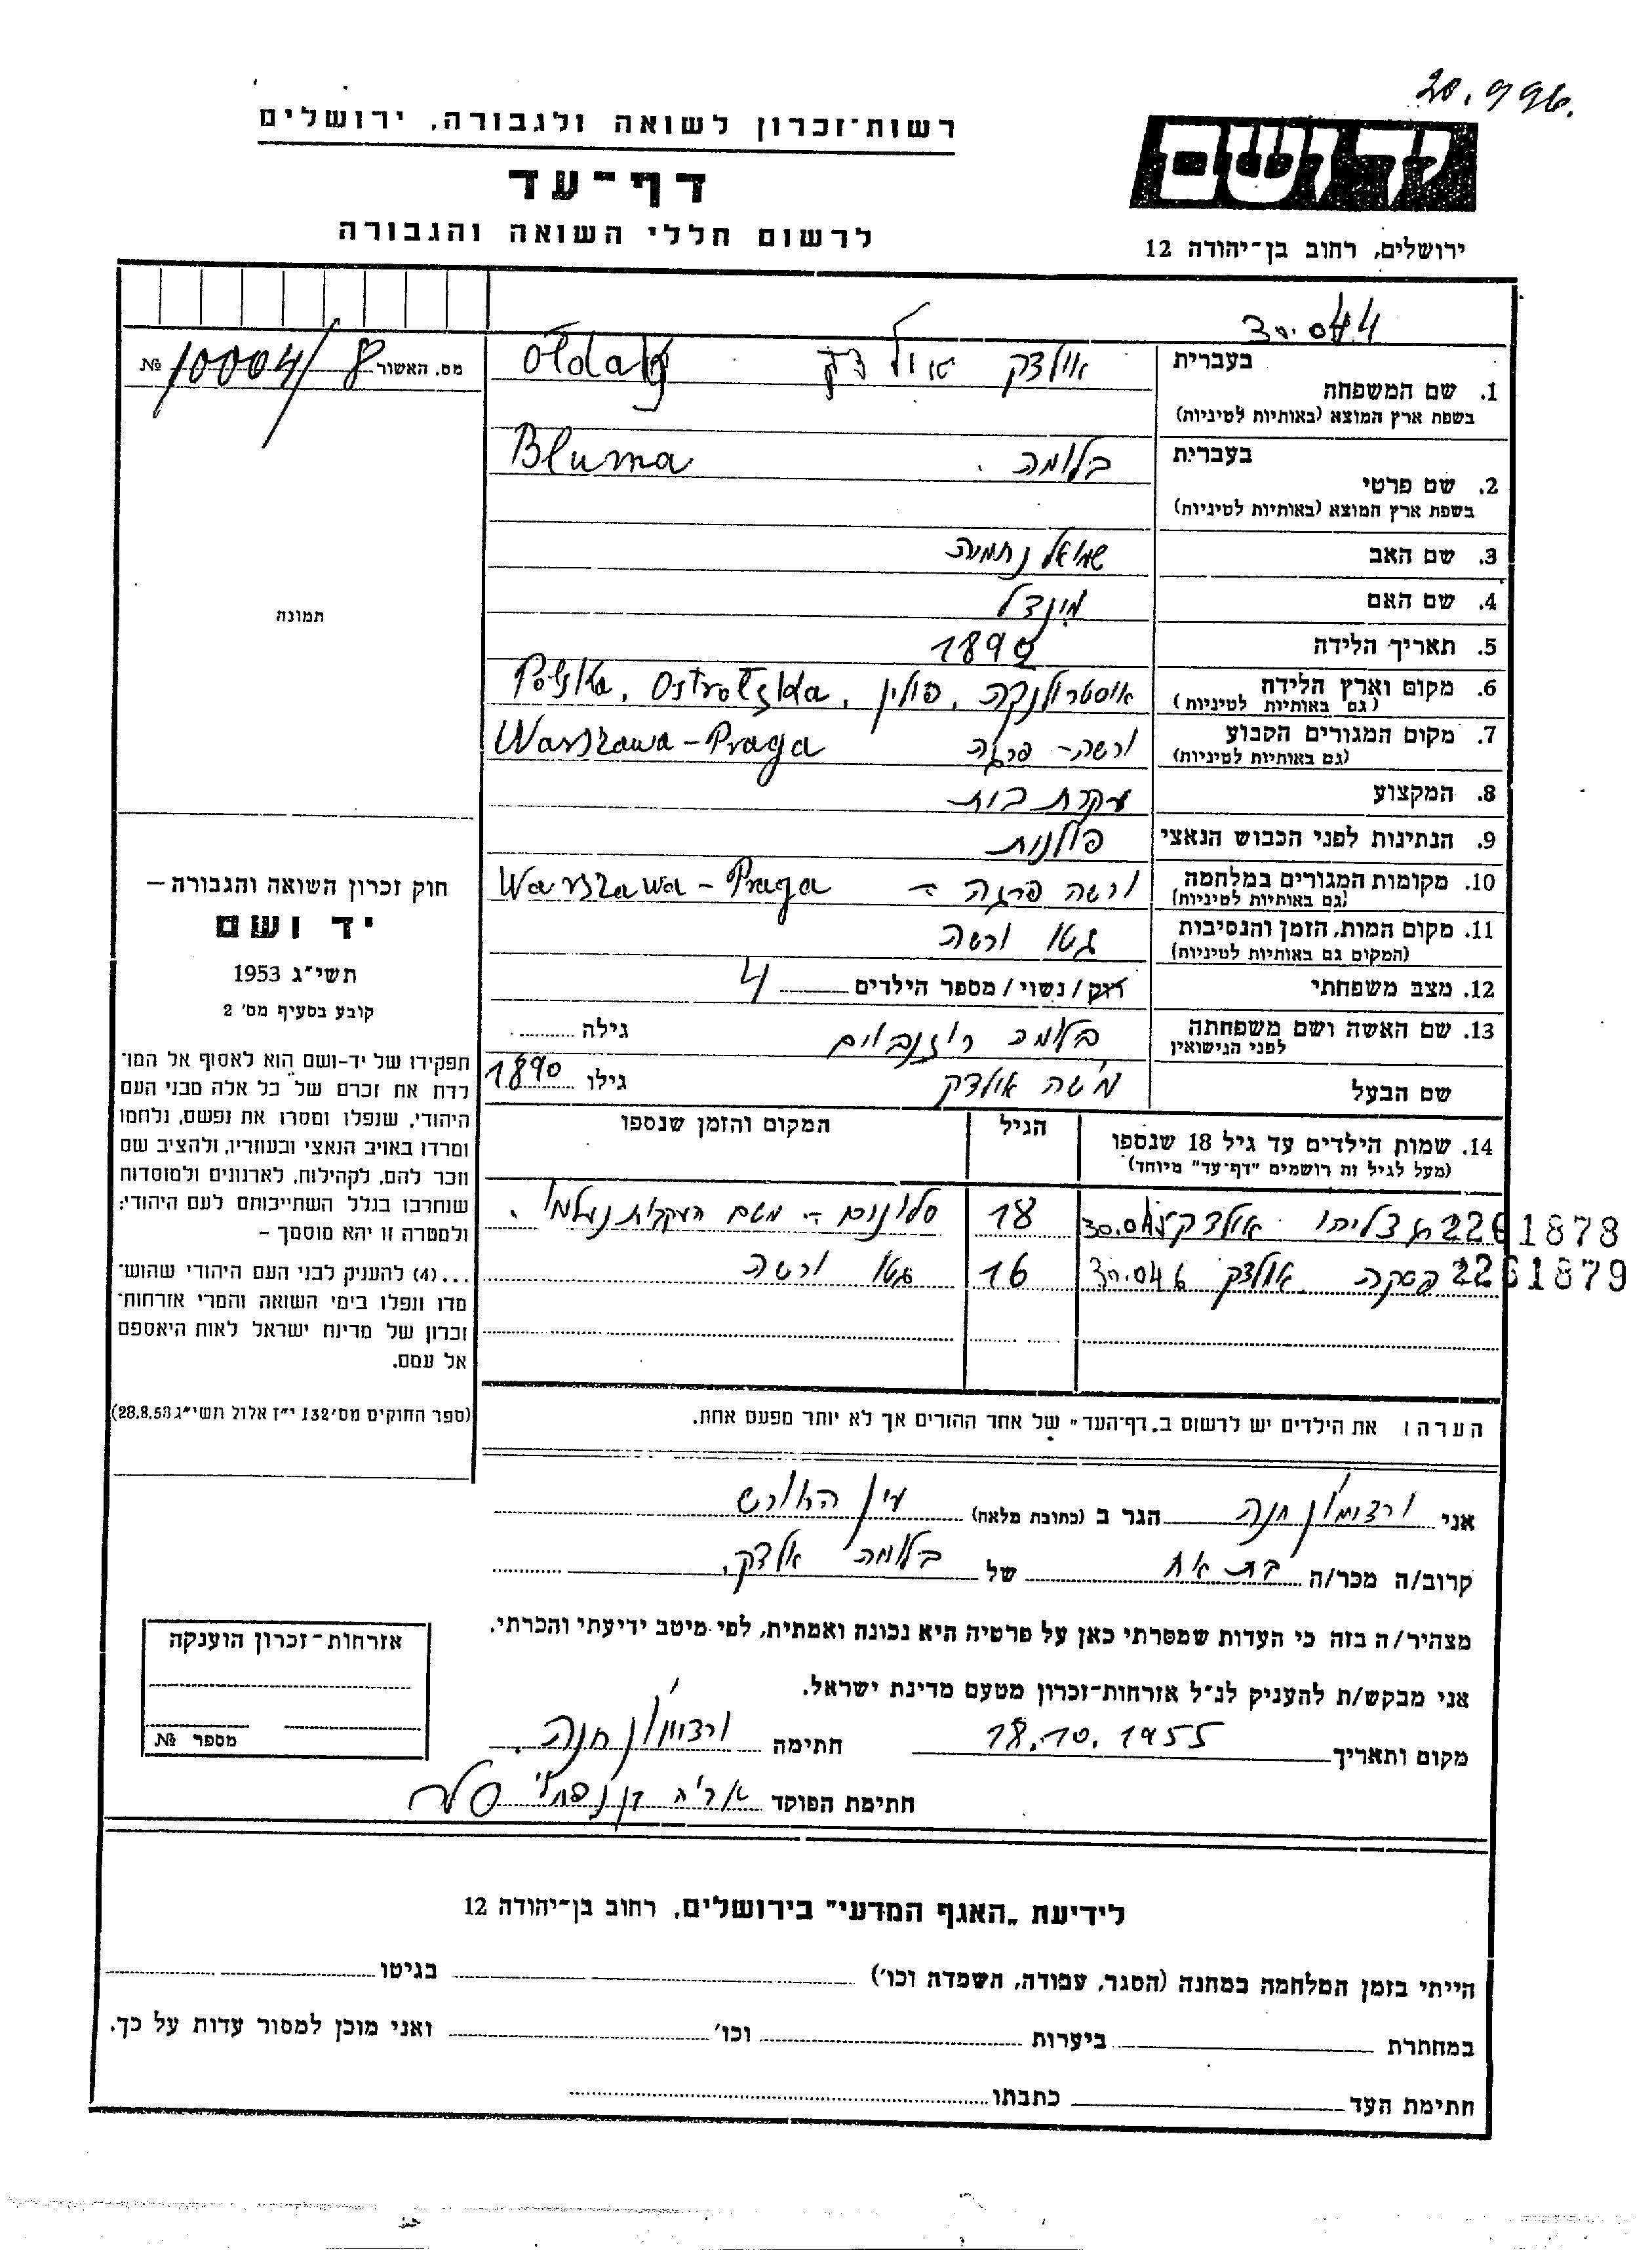 20.996.
רשות־זכרון לשואה ולגבורה, ירושלים
דף־עד
לרשום חללי השואה והגבורה
יד ושם
ירושלים, רחוב בן־יהודה 12
30.044
מס. האשור № 10004/8
1. שם המשפחה בעברית אולדק אולדק Oldak
בשפת ארץ המוצא (באותיות לטיניות)
2. שם פרטי בעברית בלומה. Bluma
בשפת ארץ המוצא (באותיות לטיניות)
3. שם האב שמואל נחמיה
4. שם האם מינדל
5. תאריך הלידה 1892
6. מקום וארץ הלידה אוסטרולנקה, פולין, Polska, Ostrołęka
(גם באותיות לטיניות)
7. מקום המגורים הקבוע ורשה־פרגה Warszawa-Praga
(גם באותיות לטיניות)
8. המקצוע עקרת בית
9. הנתינות לפני הכבוש הנאצי פולנית
10. מקומות המגורים במלחמה ורשה פרגה - Warszawa-Praga
(גם באותיות לטיניות)
11. מקום המות, הזמן והנסיבות גטו ורשה
(המקום גם באותיות לטיניות)
12. מצב משפחתי רווק/נשוי/מספר הילדים 4
13. שם האשה ושם משפחתה לפני הנישואין בלומה רוזנבוים גילה
שם הבעל משה אולדק גילו 1890
14. שמות הילדים עד גיל 18 שנספו הגיל המקום והזמן שנספו
(מעל לגיל זה רושמים "דף־עד" מיוחד)
2261878 אולדק 30.045 18 סלונים - משם העקבות נעלמו.
2261879 פסקה אולדק 30.046 16 גטו ורשה
הערה: את הילדים יש לרשום ב„דף־העד" של אחד ההורים אך לא יותר מפעם אחת.
תמונה
חוק זכרון השואה והגבורה —
יד ושם
תשי"ג 1953
קובע בסעיף מס' 2
תפקידו של יד-ושם הוא לאסוף אל המו־
לדת את זכרם של כל אלה מבני העם
היהודי, שנפלו ומסרו את נפשם, נלחמו
ומרדו באויב הנאצי ובעוזריו, ולהציב שם
וזכר להם, לקהילות, לארגונים ולמוסדות
שנחרבו בגלל השתייכותם לעם היהודי;
ולמטרה זו יהא מוסמך —
...(4) להעניק לבני העם היהודי שהוש־
מדו ונפלו בימי השואה והמרי אזרחות־
זכרון של מדינת ישראל לאות היאספם
אל עמם.
(ספר החוקים מס' 132 י"ז אלול תשי"ג 28.8.53)
אני חנה הגר ב (כתובת מלאה) עין החורש
קרוב/ה מכר/ה בת אח של בלומה אלדק.
מצהיר/ה בזה כי העדות שמסרתי כאן על פרטיה היא נכונה ואמתית, לפי מיטב ידיעתי והכרתי.
אני מבקש/ת להעניק לנ"ל אזרחות־זכרון מטעם מדינת ישראל.
מקום ותאריך 18.10.1955 חתימה חנה.
חתימת הפוקד
אזרחות־זכרון הוענקה
מספר №
לידיעת „האגף המדעי" בירושלים, רחוב בן־יהודה 12
הייתי בזמן המלחמה במחנה (הסגר, עבודה, השמדה וכו') בגיטו
במחתרת ביערות וכו' ואני מוכן למסור עדות על כך.
חתימת העד כתבתו